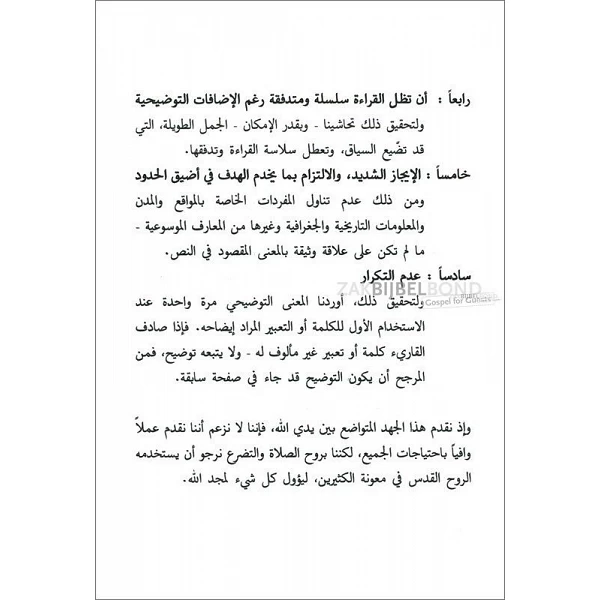 رابعاً : أن تظل القراءة سلسلة ومتدفقة رغم الإضافات التوضيحية
ولتحقيق ذلك تحاشينا - وبقدر الإمكان - الجمل الطويلة، التي
قد تضّيع السياق، وتعطل سلاسة القراءة وتدفقها.
خامساً : الإيجاز الشديد، والالتزام بما يخدم الهدف في أضيق الحدود
ومن ذلك عدم تناول المفردات الخاصة بالمواقع والمدن
والمعلومات التاريخية والجغرافية وغيرها من المعارف الموسوعية -
ما لم تكن على علاقة وثيقة بالمعنى المقصود في النص.
سادساً : عدم التكرار
ZAKBIJBELBOND
Gospel for Guests
ولتحقيق ذلك، أوردنا المعنى التوضيحي مرة واحدة عند
الاستخدام الأول للكلمة أو التعبير المراد إيضاحه. فإذا صادف
القاريء كلمة أو تعبير غير مألوف له - ولا يتبعه توضيح، فمن
المرجح أن يكون التوضيح قد جاء في صفحة سابقة.
وإذ نقدم هذا الجهد المتواضع بين يدي الله، فإننا لا نزعم أننا نقدم عملاً
وافياً باحتياجات الجميع، لكننا بروح الصلاة والتضرع نرجو أن يستخدمه
الروح القدس في معونة الكثيرين، ليؤول كل شيء لمجد الله.